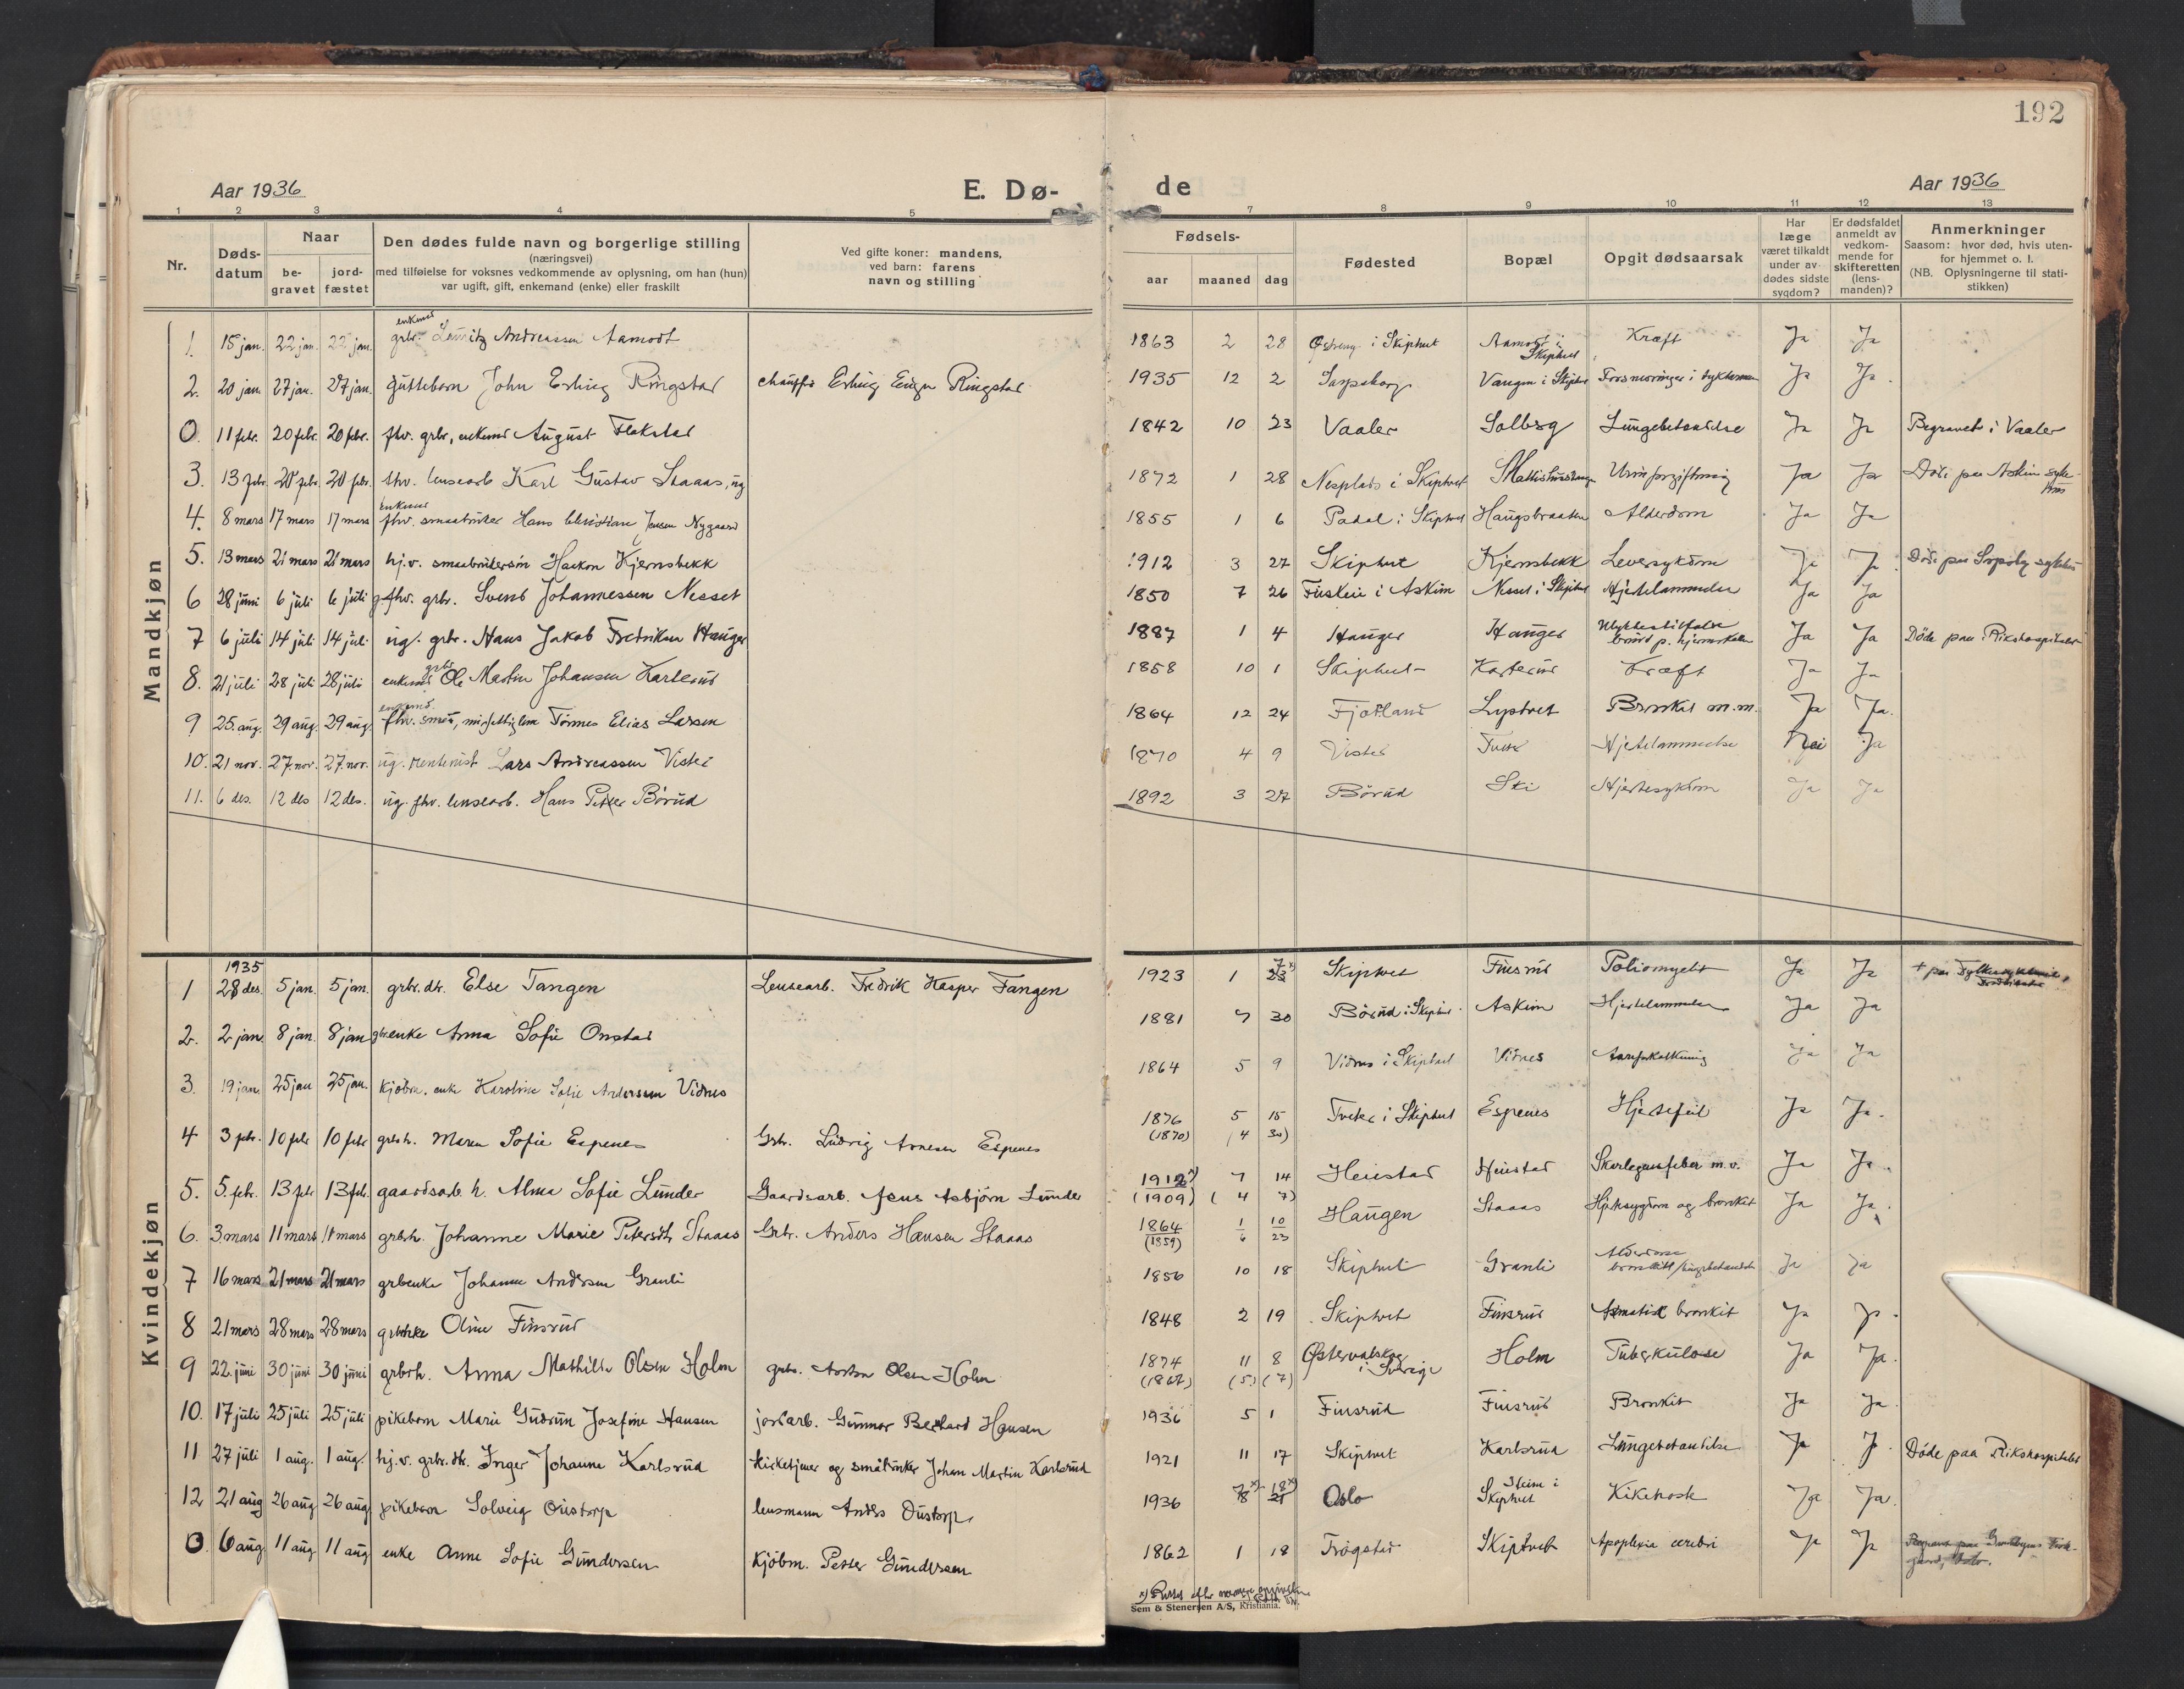 192
Aar 1936
E. Dø-
de
Aar 1936
1 2 3 4 5 7 8 9 10 11 12 13
Nr.
Døds-
datum
Naar
be-
gravet
jord-
fæstet
Den dødes fulde navn og borgerlige stilling
(næringsvei)
med tilføielse for voksnes vedkommende av oplysning, om han (hun)
var ugift, gift, enkemand (enke) eller fraskilt
Ved gifte koner: mandens,
ved barn: farens
navn og stilling
Fødsels-
aar maaned dag
Fødested
Bopæl
Opgit dødsaarsak
Har
læge
været tilkaldt
under av-
dødes sidste
sygdom?
Er dødsfaldet
anmeldt av
vedkom-
mende for
skifteretten
(lens-
manden)?
Anmerkninger
Saasom: hvor død, hvis uten-
for hjemmet o. l.
(NB. Oplysningerne til stati-
stikken)
Mandkjøn
1. 15 jan. 22 jan. 22 jan. enkemd grbr. Lauritz Andreassen Aamodt 1863 2 28 i Skiptvet Aamodt i Skiptvet Kræft Ja Ja
2. 20 jan. 27 jan. 27 jan. guttebarn John Erling Ringstad Erling Ringstad 1935 12 2 Sarpsborg Vangen i Skiptvet Ja Ja.
0. 11 febr. 20 febr. 20 febr. fhv. grbr, enkemd August Flakstad 1842 10 23 Vaaler Solberg Lungebetændelse Ja Ja Begravet i Vaaler
3. 13 febr. 20 febr. 20 febr. fhv. lensearb Karl Gustav Staaas, ug 1872 1 28 Nesplads i Skiptvet Urinforgiftning Ja Ja Døde paa Askim syke-
hus
4. 8 mars 17 mars 17 mars enkemd fhv. smaabruker Hans Christian Jensen Nygaard 1855 1 6 i Skiptvet Haugsbraaten Alderdom Ja Ja
5. 13 mars 21 mars 21 mars hj.v. smaabrukersøn Haakon Kjernsbekk 1912 3 27 Skiptvet Kjernsbekk Leversykdom Ja Ja. Døde paa Sarpsborg sykehus
6 28 juni 6 juli 6 juli g. fhv. grbr. Svend Johannessen Nesset 1850 7 26 i Askim Nesset i Skiptvet Hjertelammelse Ja Ja
7 6 juli 14 juli 14 juli ug. grbr. Hans Jakob Fredriksen Hauger 1887 1 4 Hauger Hauger Ulykkestilfælde
brudd p. hjerneskallen Ja Ja Døde paa Rikshospitalet
8. 21 juli 28 juli 28 juli enkemd grbr Ole Martin Johansen Karlsrud 1858 10 1 Skiptvet Karlsrud Kræft Ja Ja
9 25. aug. 29 aug. 29 aug. enkemd. fhv. smed, Tønnes Elias Larsen 1864 12 24 Fjotland Lystvet Bronkit m.m. Ja Ja.
10. 21 nov. 27. nov. 27. nov. ug. rentenist Lars Andreassen Vister 1870 4 9 Vister Hjertelammelse Nei Ja
11. 6 des. 12 des 12 des. ug. fhv. lensearb. Hans Petter Børud 1892 3 27 Børud Ski Hjertesykdom Ja Ja
Kvindekjøn
1 1935 28 des. 5 jan. 5 jan. grbr. dtr. Else Tangen Lensearb. Fredrik Kasper Tangen 1923 1 23 7 x) Skiptvet Finsrud Poliomyelit Ja Ja
2. 2 jan. 8 jan. 8 jan grbr.enke Anna Sofie Onstad 1881 7 30 Børud i Skiptvet Askim Hjertelammelse Ja Ja
3. 19 jan. 25 jan 25 jan. kjøbm. enke Karoline Sofie Andersen Vidnes 1864 5 9 Vidnes i Skiptvet Vidnes Aareforkalkning Ja Ja
4 3 febr. 10 febr 10 febr grbr.h. Maren Sofie Espenes Grbr. Ludvig Arnesen Espenes 1876 5 15 Tveter i Skiptvet Espenes Hjertefeil Ja Ja.
(1870) (4 30)
5. 5. febr. 13 febr 13 feb. gaardsarb. h. Alma Sofie Lunder Gaardsarb. Jens Asbjørn Lunder 1912 x) 7 14 Heistad Heistad Skarlagensfeber m.v. Ja Ja.
(1909) (4 7)
6. 3. mars 11 mars 11 mars grbr.h. Johanne Marie Petersdtr Staaas Grbr. Anders Hansen Staaas 1864 1 10 Haugen Staaas Hjertesygdom og bronkit Ja Ja.
(1859) 6 23
7 16 mars 21 mars 21 mars grbr.enke Johanne Andersen Granli 1856 10 18 Skiptvet Granli Alderdom
bronkitt/lungebetændelse Ja Ja
8 21 mars 28 mars 28 mars grbr.enke Oline Finsrud 1848 2 19 Skiptvet Finsrud Asmatisk bronkit Ja Ja.
9 22. juni 30 juni 30 juni grbr.h. Anna Mathilde Olsen Holm grbr. Anton Olsen Holm 1874 11 8 Østervalskog
i Sverige Holm Tuberkulose Ja Ja.
(1867) (5) (7)
10. 17 juli 25 juli 25 juli pikebarn Marie Gudrun Josefine Hansen jordarb. Gunnar Berhard Hansen 1936 5 1 Finsrud Finsrud Bronkit Ja Ja
11 27 juli 1 aug. 1 aug. hj. v. grbr. dtr. Inger Johanne Karlsrud Kirketjener og småbruker Johan Martin Karlsrud 1921 11 17 Skiptvet Karlsrud Lungebetændelse Ja Ja. Døde paa Rikshospitalet
12 21 aug 26 aug 26 aug pikebarn Solveig Dustorp lensmann Anders Dustorp. 1936 7 x) 8 18 x) 21 Oslo Heim i
Skiptvet Kikhoste Ja Ja.
0. 6 aug. 11 aug 11 aug enke Anne Sofie Gundersen Kjøbm. Petter Gundersen 1862 1 18 Trøgstad Skiptvet Apoplexia cerebri Ja Ja
Sem & Stenersen A/S, Kristiania.